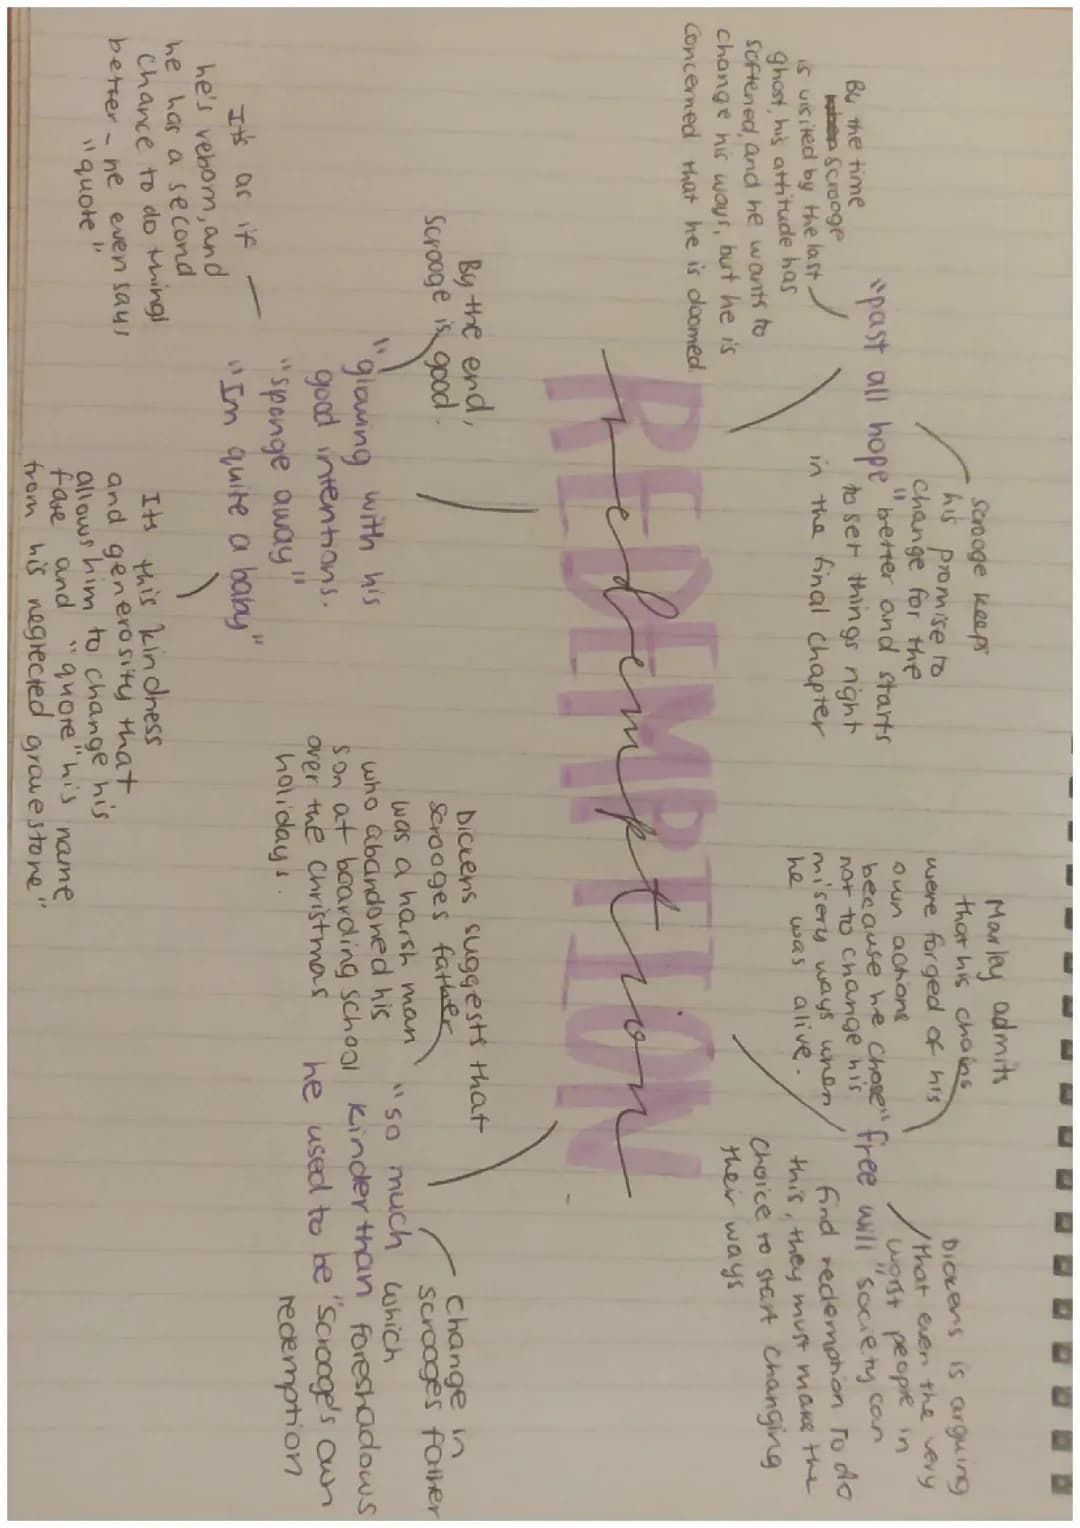 REDEMPTION
redemption
By the time
Scrooge
is visited by the last
ghost, his attitude has
softened, and he wants to
change his ways, but he is
concerned that he is doomed
"past all hope"
Scrooge keeps
his promise to
change for the
better and starts
to set things right
in the final chapter
Marley admits
that his chains
were forged of his
own actions
because he chose
not to change his
misery ways when
he was alive.
"free will"
Dickens is arguing
that even the very
worst people in
society can
find redemption To do
this, they must make the
choice to start changing
their ways
By the end,
Scrooge is good.
"glowing with his
good intentions.
"sponge away"
"Im quite a baby"
It's as if
he's reborn, and
he has a second
chance to do things
better - he even says
"quote"
Its this kindness
and generosity that
allows him to change his
fate and "quote" his name
from his neglected gravestone"
Dickens suggests that
scrooges father
was a harsh man
who abandoned his
son at boarding school
over the christmas
holidays.
"so much
kinder than
he used to be"
Change in
scrooges father
which
foreshadows
scrooge's own
redemption